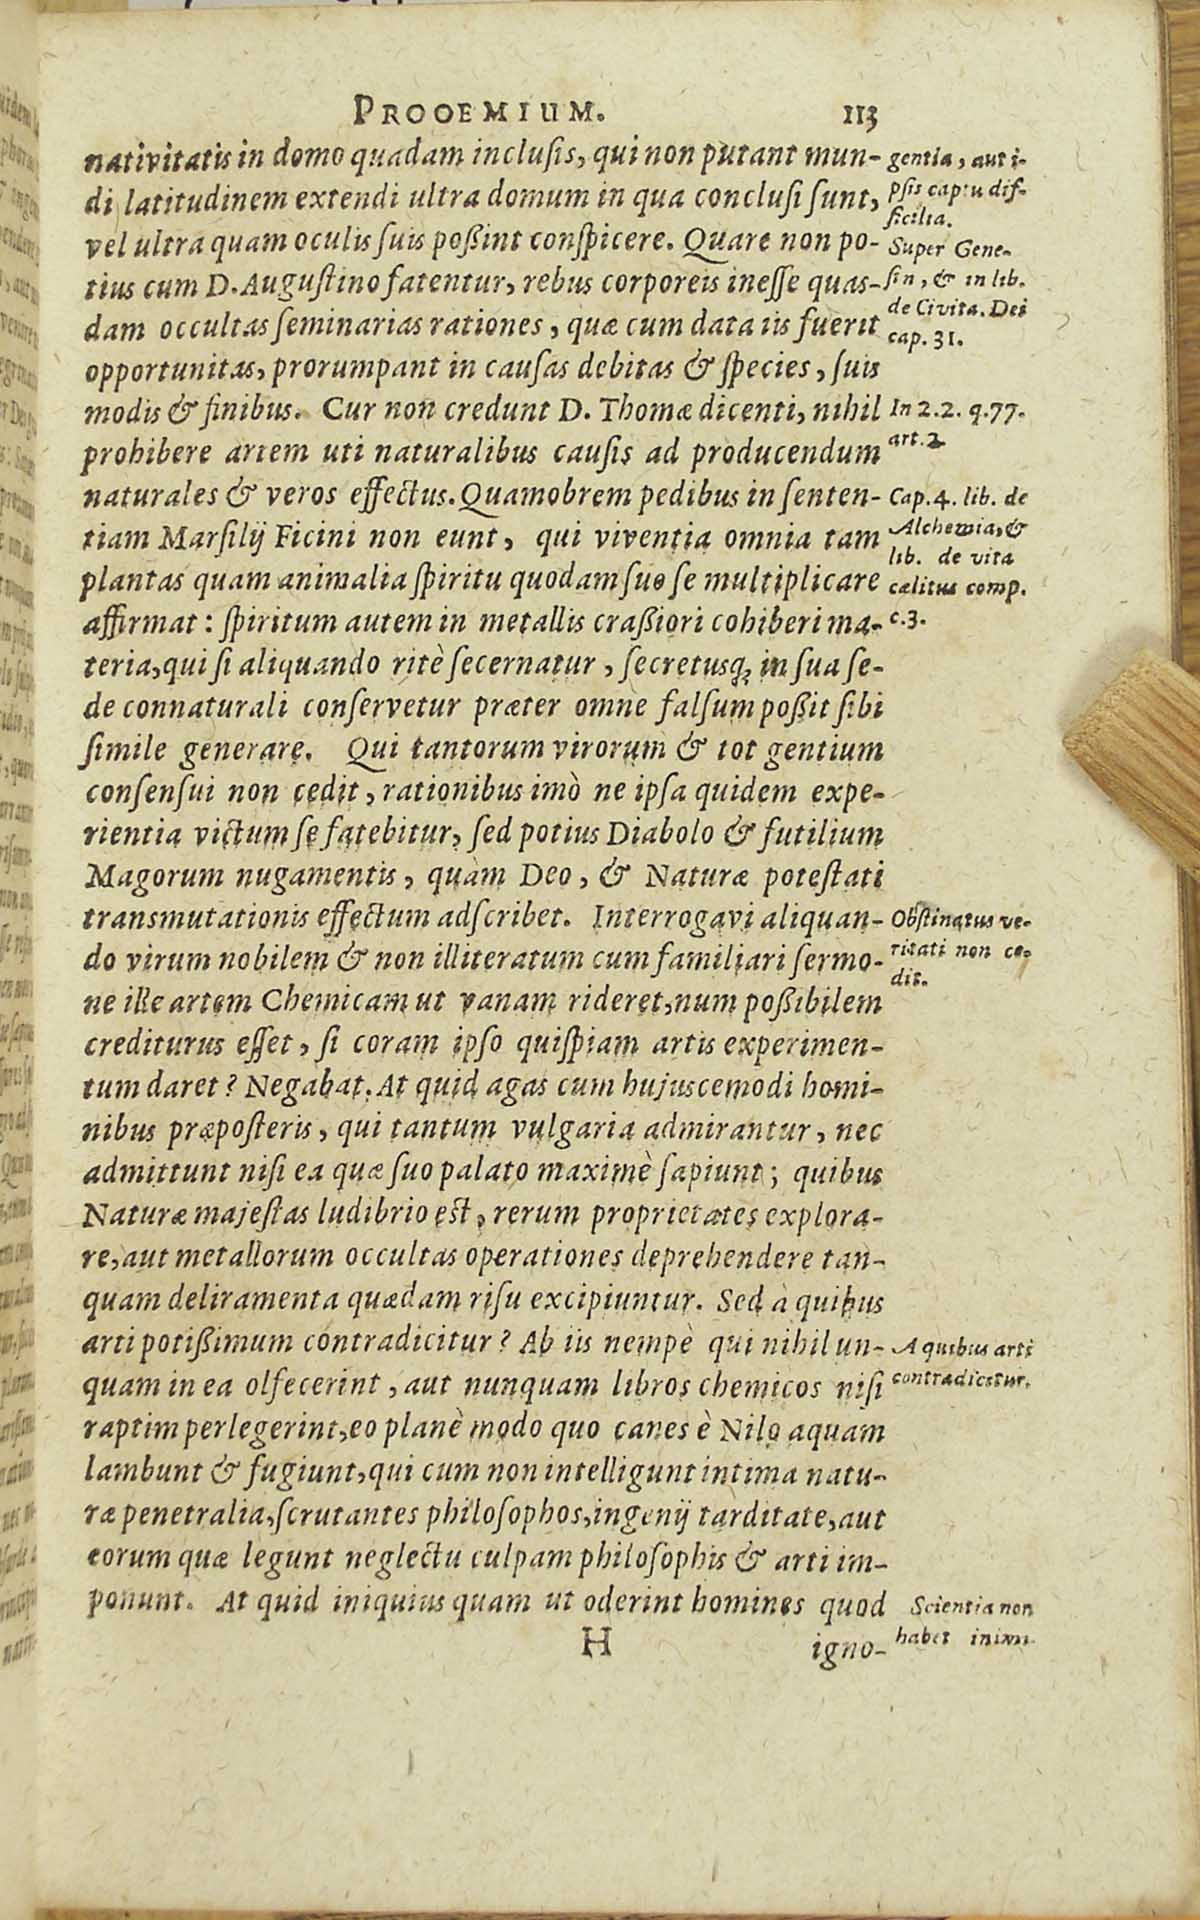 PROOEMIUM. 113
nativitatis in domo quadam inclusis, qui non putant mun-
di latitudinem extendi ultra domum in qua conclusi sunt,
vel ultra quam oculis suis poßint conspicere. Quare non po-
tius cum D. Augustino fatentur, rebus corporeis inesse quas-
dam occultas seminarias rationes, quæ cum data iis fuerit
opportunitas, prorumpant in causas debitas & species, suis
modis & finibus. Cur non credunt D. Thomæ dicenti, nihil
prohibere artem uti naturalibus causis ad producendum
naturales & veros effectus. Quamobrem pedibus in senten-
tiam Marsilij Ficini non eunt, qui viventia omnia tam
plantas quam animalia spiritu quodam suo se multiplicare
affirmat: spiritum autem in metallis craßiori cohiberi ma-
teria, qui si aliquando ritè secernatur, secretusq; in sua se-
de connaturali conservetur præter omne falsum poßit sibi
simile generare. Qui tantorum virorum & tot gentium
consensui non cedit, rationibus imò ne ipsa quidem expe-
rientia victum se fatebitur, sed potius Diabolo & futilium
Magorum nugamentis, quàm Deo, & Naturæ potestati
transmutationis effectum adscribet. Interrogavi aliquan-
do virum nobilem & non illiteratum cum familiari sermo-
ne ille artem Chemicam ut vanam rideret, num poßibilem
crediturus esset, si coram ipso quispiam artis experimen-
tum daret? Negabat. At quid agas cum hujuscemodi homi-
nibus præposteris, qui tantum vulgaria admirantur, nec
admittunt nisi ea quæ suo palato maximè sapiunt; quibus
Naturæ majestas ludibrio est, rerum proprietates explora-
re, aut metallorum occultas operationes deprehendere tan-
quam deliramenta quædam risu excipiuntur. Sed à quibus
arti potißimum contradicitur? Ab iis nempè qui nihil un-
quam in ea olfecerint, aut nunquam libros chemicos nisi
raptim perlegerint, eo planè modo quo canes è Nilo aquam
lambunt & fugiunt, qui cum non intelligunt intima natu-
ræ penetralia, scrutantes philosophos, ingenij tarditate, aut
eorum quæ legunt neglectu culpam philosophis & arti im-
ponunt. At quid iniquius quam ut oderint homines quod
H igno-
gentia, aut i-
psis captu dif-
ficilia.
Super Gene-
sin, & in lib.
de Civita. Dei
cap. 31.
In 2.2. q.77.
art.2
Cap.4. lib. de
Alchemia, &
lib. de vita
cælitus comp.
c.3.
Obstinatus ve-
ritati non ce-
dit.
A quibus arti
contradicitur.
Scientia non
habet inimi-